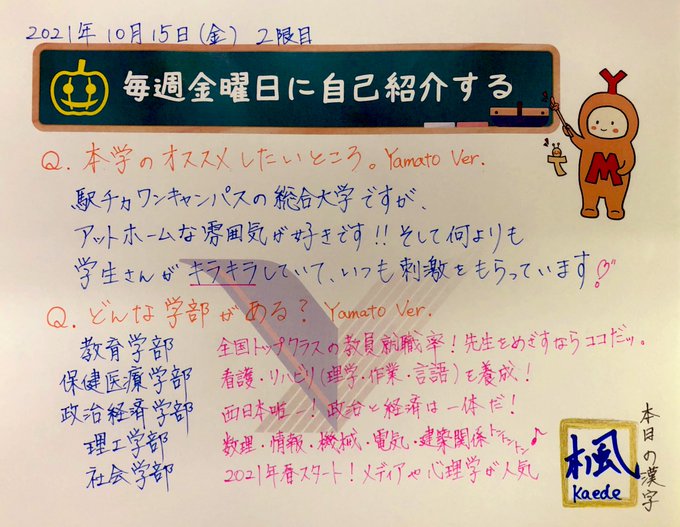 2021年10月15日(金) 2限目
毎週金曜日に自己紹介する
Q. 本学のオススメしたいところ。Yamato Ver.
駅チカワンキャンパスの総合大学ですが、
アットホームな雰囲気が好きです!! そして何よりも
学生さんがキラキラしていて、いつも刺激をもらっています♡
Q. どんな学部がある? Yamato Ver.
教育学部 全国トップクラスの教員就職率!先生をめざすならココだッ。
保健医療学部 看護・リハビリ(理学・作業・言語)を養成!
政治経済学部 西日本唯一!政治と経済は一体だ!
理工学部 数理・情報・機械・電気・建築関係トントントン♪
社会学部 2021年春スタート!メディアや心理学が人気
本日の漢字
楓
Kaede
M